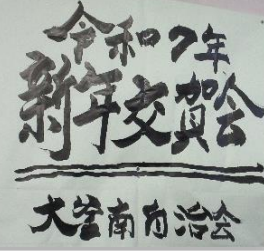 令和7年
新年交賀会
大釜南自治会